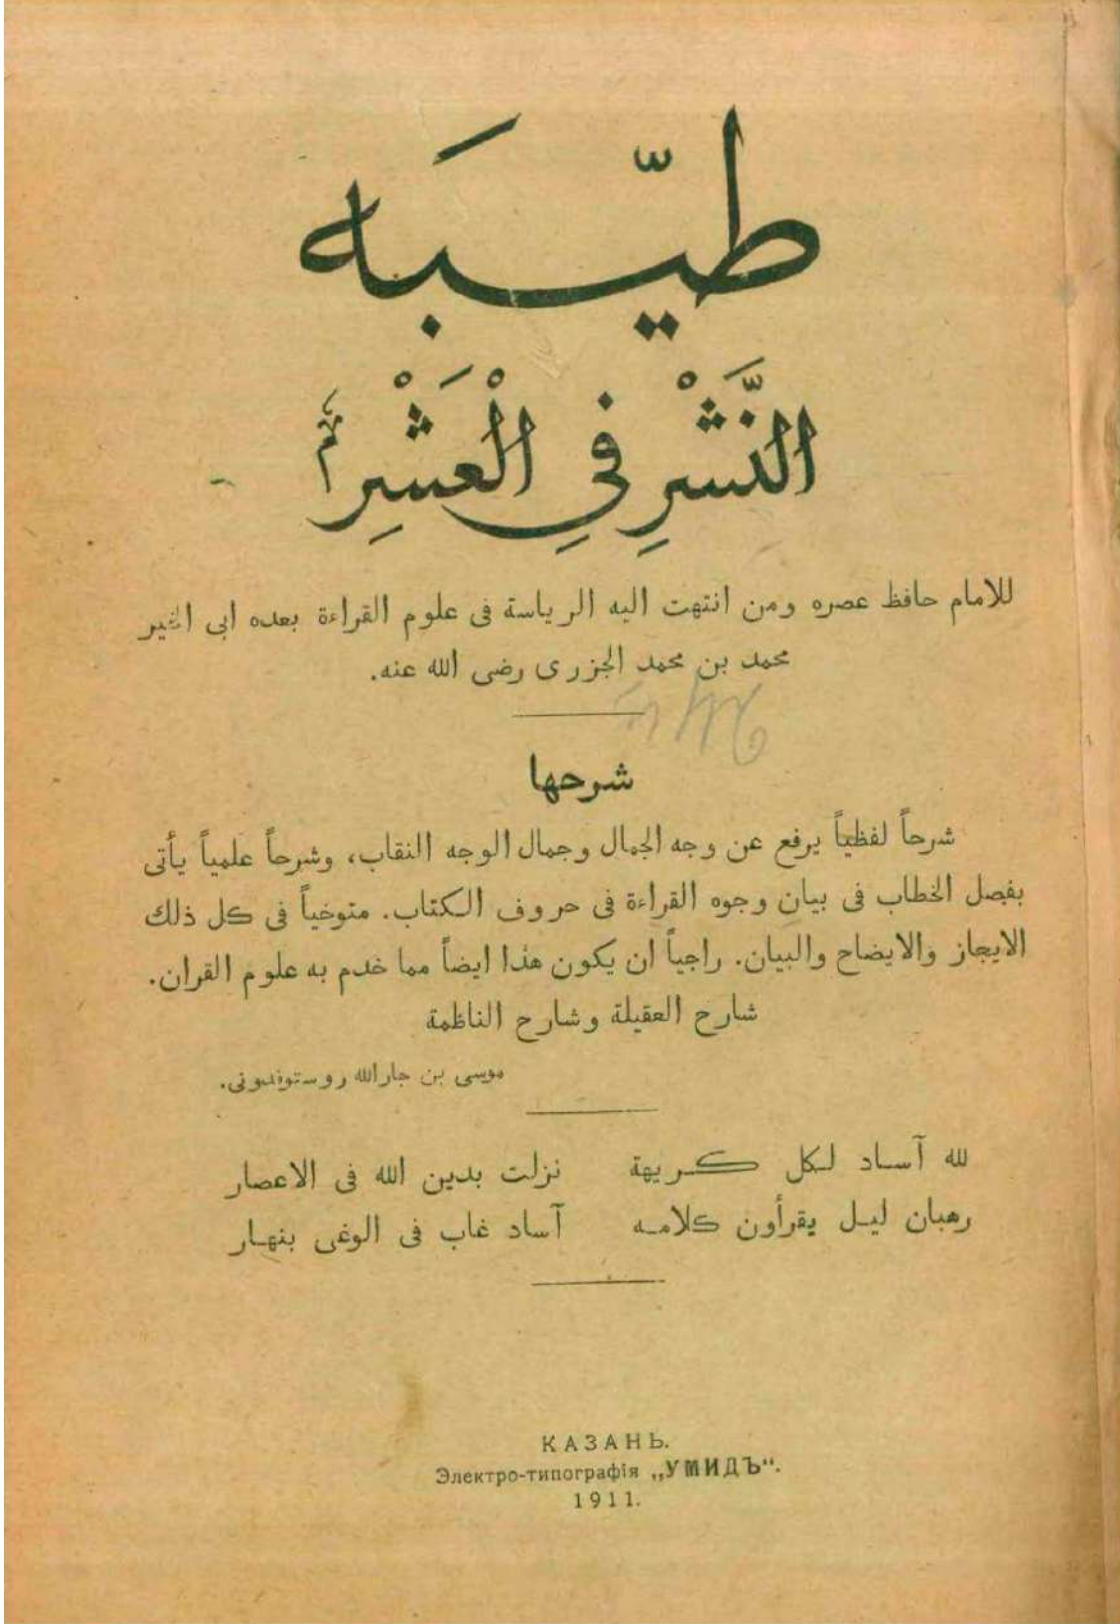 طيّبَه
النَّشْرِ فِي الْعَشْرِ
للامام حافظ عصره ومن انتهت اليه الرياسة فى علوم القراءة بعده ابى الخير
محمد بن محمد الجزرى رضى الله عنه.
شرحها
شرحاً لفظياً يرفع عن وجه الجمال وجمال الوجه النقاب، وشرحاً علمياً يأتى
بفصل الخطاب فى بيان وجوه القراءة فى حروف الكتاب. متوخياً فى كل ذلك
الايجاز والايضاح والبيان. راجياً ان يكون هذا ايضاً مما خدم به علوم القران.
شارح العقيلة وشارح الناظمة
موسى بن جارالله روستوفدونى.
لله آساد لكل كريهة نزلت بدين الله فى الاعصار
رهبان ليل يقرأون كلامه آساد غاب فى الوغى بنهار
КАЗАНЬ.
Электро-типографія „УМИДЪ“.
1911.